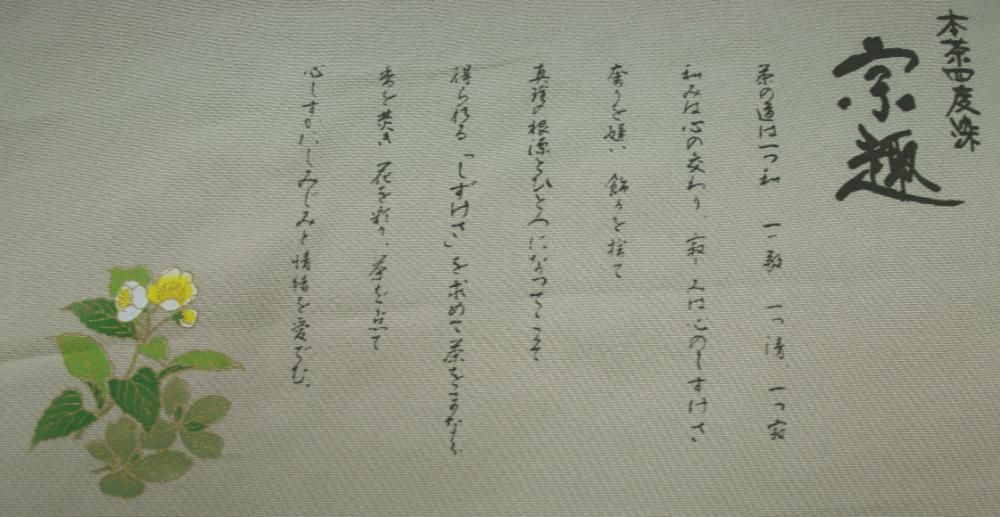 本茶四度染
宗趣
茶の道は一つ和 一つ敬 一つ清、一つ寂
和みは心の交わり、寂しみは心のしずけさ
奢りを嫌い 飾りを捨て
真理の根源とひとつになってこそ
得られる「しずけさ」を求めて茶を
香を焚き 花を彩り、茶を点て
心しずかにしみじみと情緒を愛でむ。